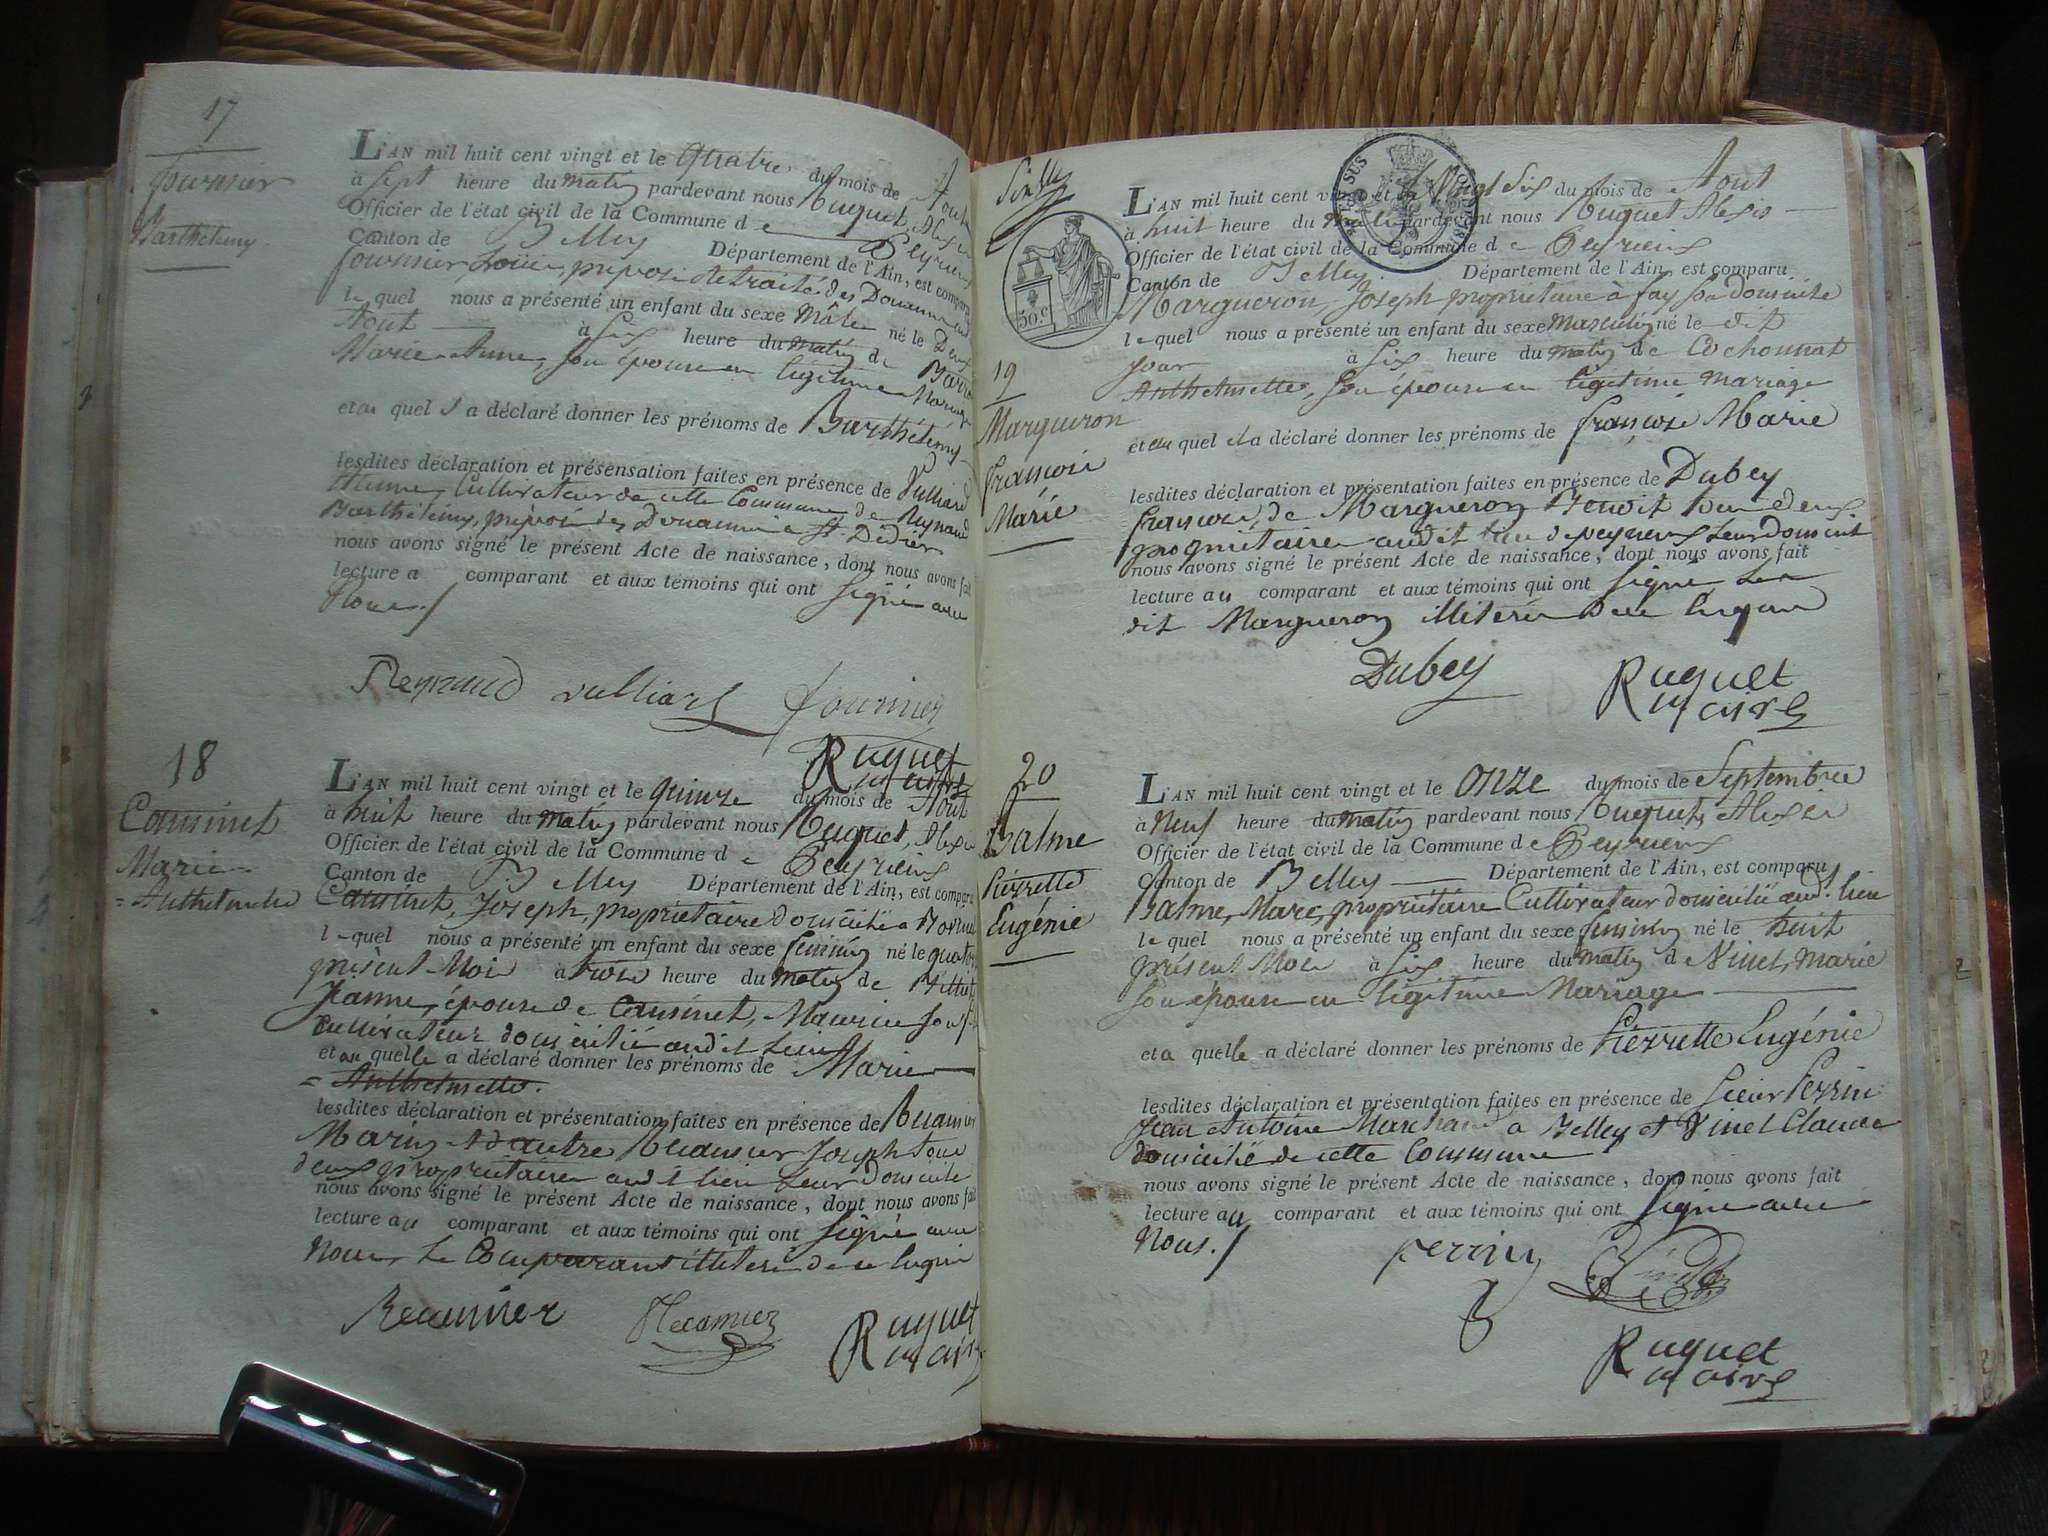 17
Fournier
Barthélemy
L'AN mil huit cent vingt et le quatre du mois de Aout
à sept heure du matin pardevant nous Ruguet, Alexis
Officier de l'état civil de la Commune de Peyrieux
Canton de Belley Département de l'Ain, est comparu
Fournier, préposé retraité des Douanes
lequel nous a présenté un enfant du sexe Mâle né le Deux
Aout à six heure du matin de
Marie Anne, son épouse en légitime Mariage
et au quel il a déclaré donner les prénoms de Barthélemy
lesdites déclaration et présensation faites en présence de Vulliard
Etienne, Cultivateur de cette Commune, de Reynaud
Barthélemy, préposé des Douanes à St. Didier
nous avons signé le présent Acte de naissance, dont nous avons fait
lecture au comparant et aux témoins qui ont signé avec
Nous./
Reynaud vulliard fournier
Ruguet
maire
18
Causinet
Marie=
=Anthelmette
L'AN mil huit cent vingt et le quinze du mois de Aout
à huit heure du matin pardevant nous Ruguet, Alexis
Officier de l'état civil de la Commune de Peyrieux
Canton de Belley Département de l'Ain, est comparu
Causinet, Joseph, propriétaire domicilié à
lequel nous a présenté un enfant du sexe féminin né le quatorze
présent Mois à trois heure du matin de
Jeanne, épouse de Causinet, Maurice son fils
Cultivateur domicilié audit Lieu
et au quelle a déclaré donner les prénoms de Marie
=Anthelmette.
lesdites déclaration et présentation faites en présence de
Marin, d'autre Récamier Joseph tous
deux propriétaires audit lieu leur domicile
nous avons signé le présent Acte de naissance, dont nous avons fait
lecture au comparant et aux témoins qui ont signé avec
Nous, Le Comparant illiteré de ce Enquis
Recamier Recamier
Ruguet
maire
RE SUS
50.c
19
Margueron
François
Marie
L'AN mil huit cent vingt et le Vingt Six du mois de Aout
à huit heure du matin pardevant nous Ruguet Alexis
Officier de l'état civil de la Commune de Peyrieux
Canton de Belley. Département de l'Ain, est comparu
Margueron, Joseph propriétaire à fay son domicile
lequel nous a présenté un enfant du sexe masculin né le dit
Jour à six heure du matin de Cochonnat
Anthelmette, son épouse en légitime mariage
et au quel il a déclaré donner les prénoms de françois Marie
lesdites déclaration et présentation faites en présence de Dubey
françois, de Margueron Benoit tous deux
propriétaires audit lieu de peyrieux leur domicile
nous avons signé le présent Acte de naissance, dont nous avons fait
lecture au comparant et aux témoins qui ont signé Les
dit Margueron illiteré de ce Enquis
Dubey Ruguet
maire
20
Balme
Pierrette
Eugénie
L'AN mil huit cent vingt et le onze du mois de Septembre
à Neuf heure du matin pardevant nous Ruguet, Alexis
Officier de l'état civil de la Commune de Peyrieux
Canton de Belley Département de l'Ain, est comparu
Balme, Marc, propriétaire Cultivateur domicilié aud. lieu
lequel nous a présenté un enfant du sexe féminin né le huit
présent Mois à six heure du matin de Vinet, Marie
son épouse en légitime Mariage
et a quelle a déclaré donner les prénoms de Pierrette Eugénie
lesdites déclaration et présentation faites en présence de Sieur Perrin
Jean Antoine Marchand à Belley et Vinet Claude
domicilié de cette Commune
nous avons signé le présent Acte de naissance, dont nous avons fait
lecture au comparant et aux témoins qui ont signé avec
Nous./
Perrin
Ruguet
maire